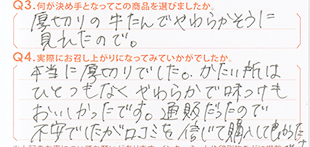 Q3.何が決め手となってこの商品を選びましたか。
厚切りの牛たんでやわらかそうに
見れたので。
Q4.実際にお召し上がりになってみていかがでしたか。
本当に厚切りでした。かたい所は
ひとつもなくやわらかで味つけも
おいしかったです。通販だったので
不安でしたが口コミを信じて購入して良かった
です